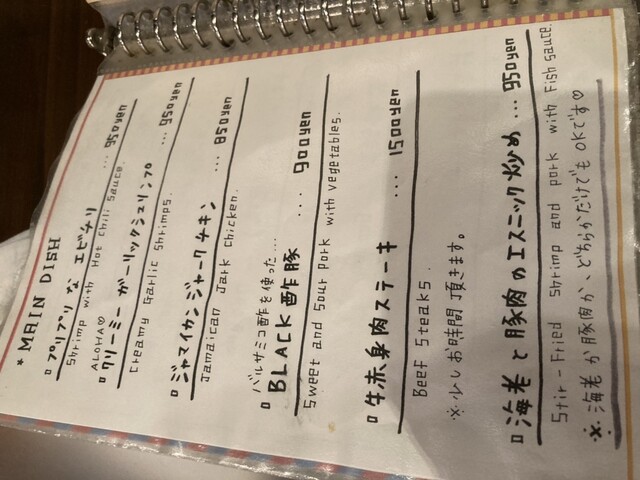 * MAIN DISH
プリプリな エビチリ ... 950yen
Shrimp with Hot chili Sauce.
ALOHA♡
クリーミー ガーリックシュリンプ ... 950yen
Creamy Garlic Shrimps.
ジャマイカンジャークチキン ... 850yen
Jamaican Jark Chicken.
バルサミコ酢を使った...
BLACK 酢豚 ... 900yen
Sweet and Sour pork with vegetables.
牛赤身肉ステーキ ... 1500yen
Beef Steaks.
※少しお時間頂きます。
海老と豚肉のエスニック炒め ... 950yen
Stir-Fried Shrimp and pork with Fish sauce.
※海老か豚肉か、どちらかだけでもOKです♡